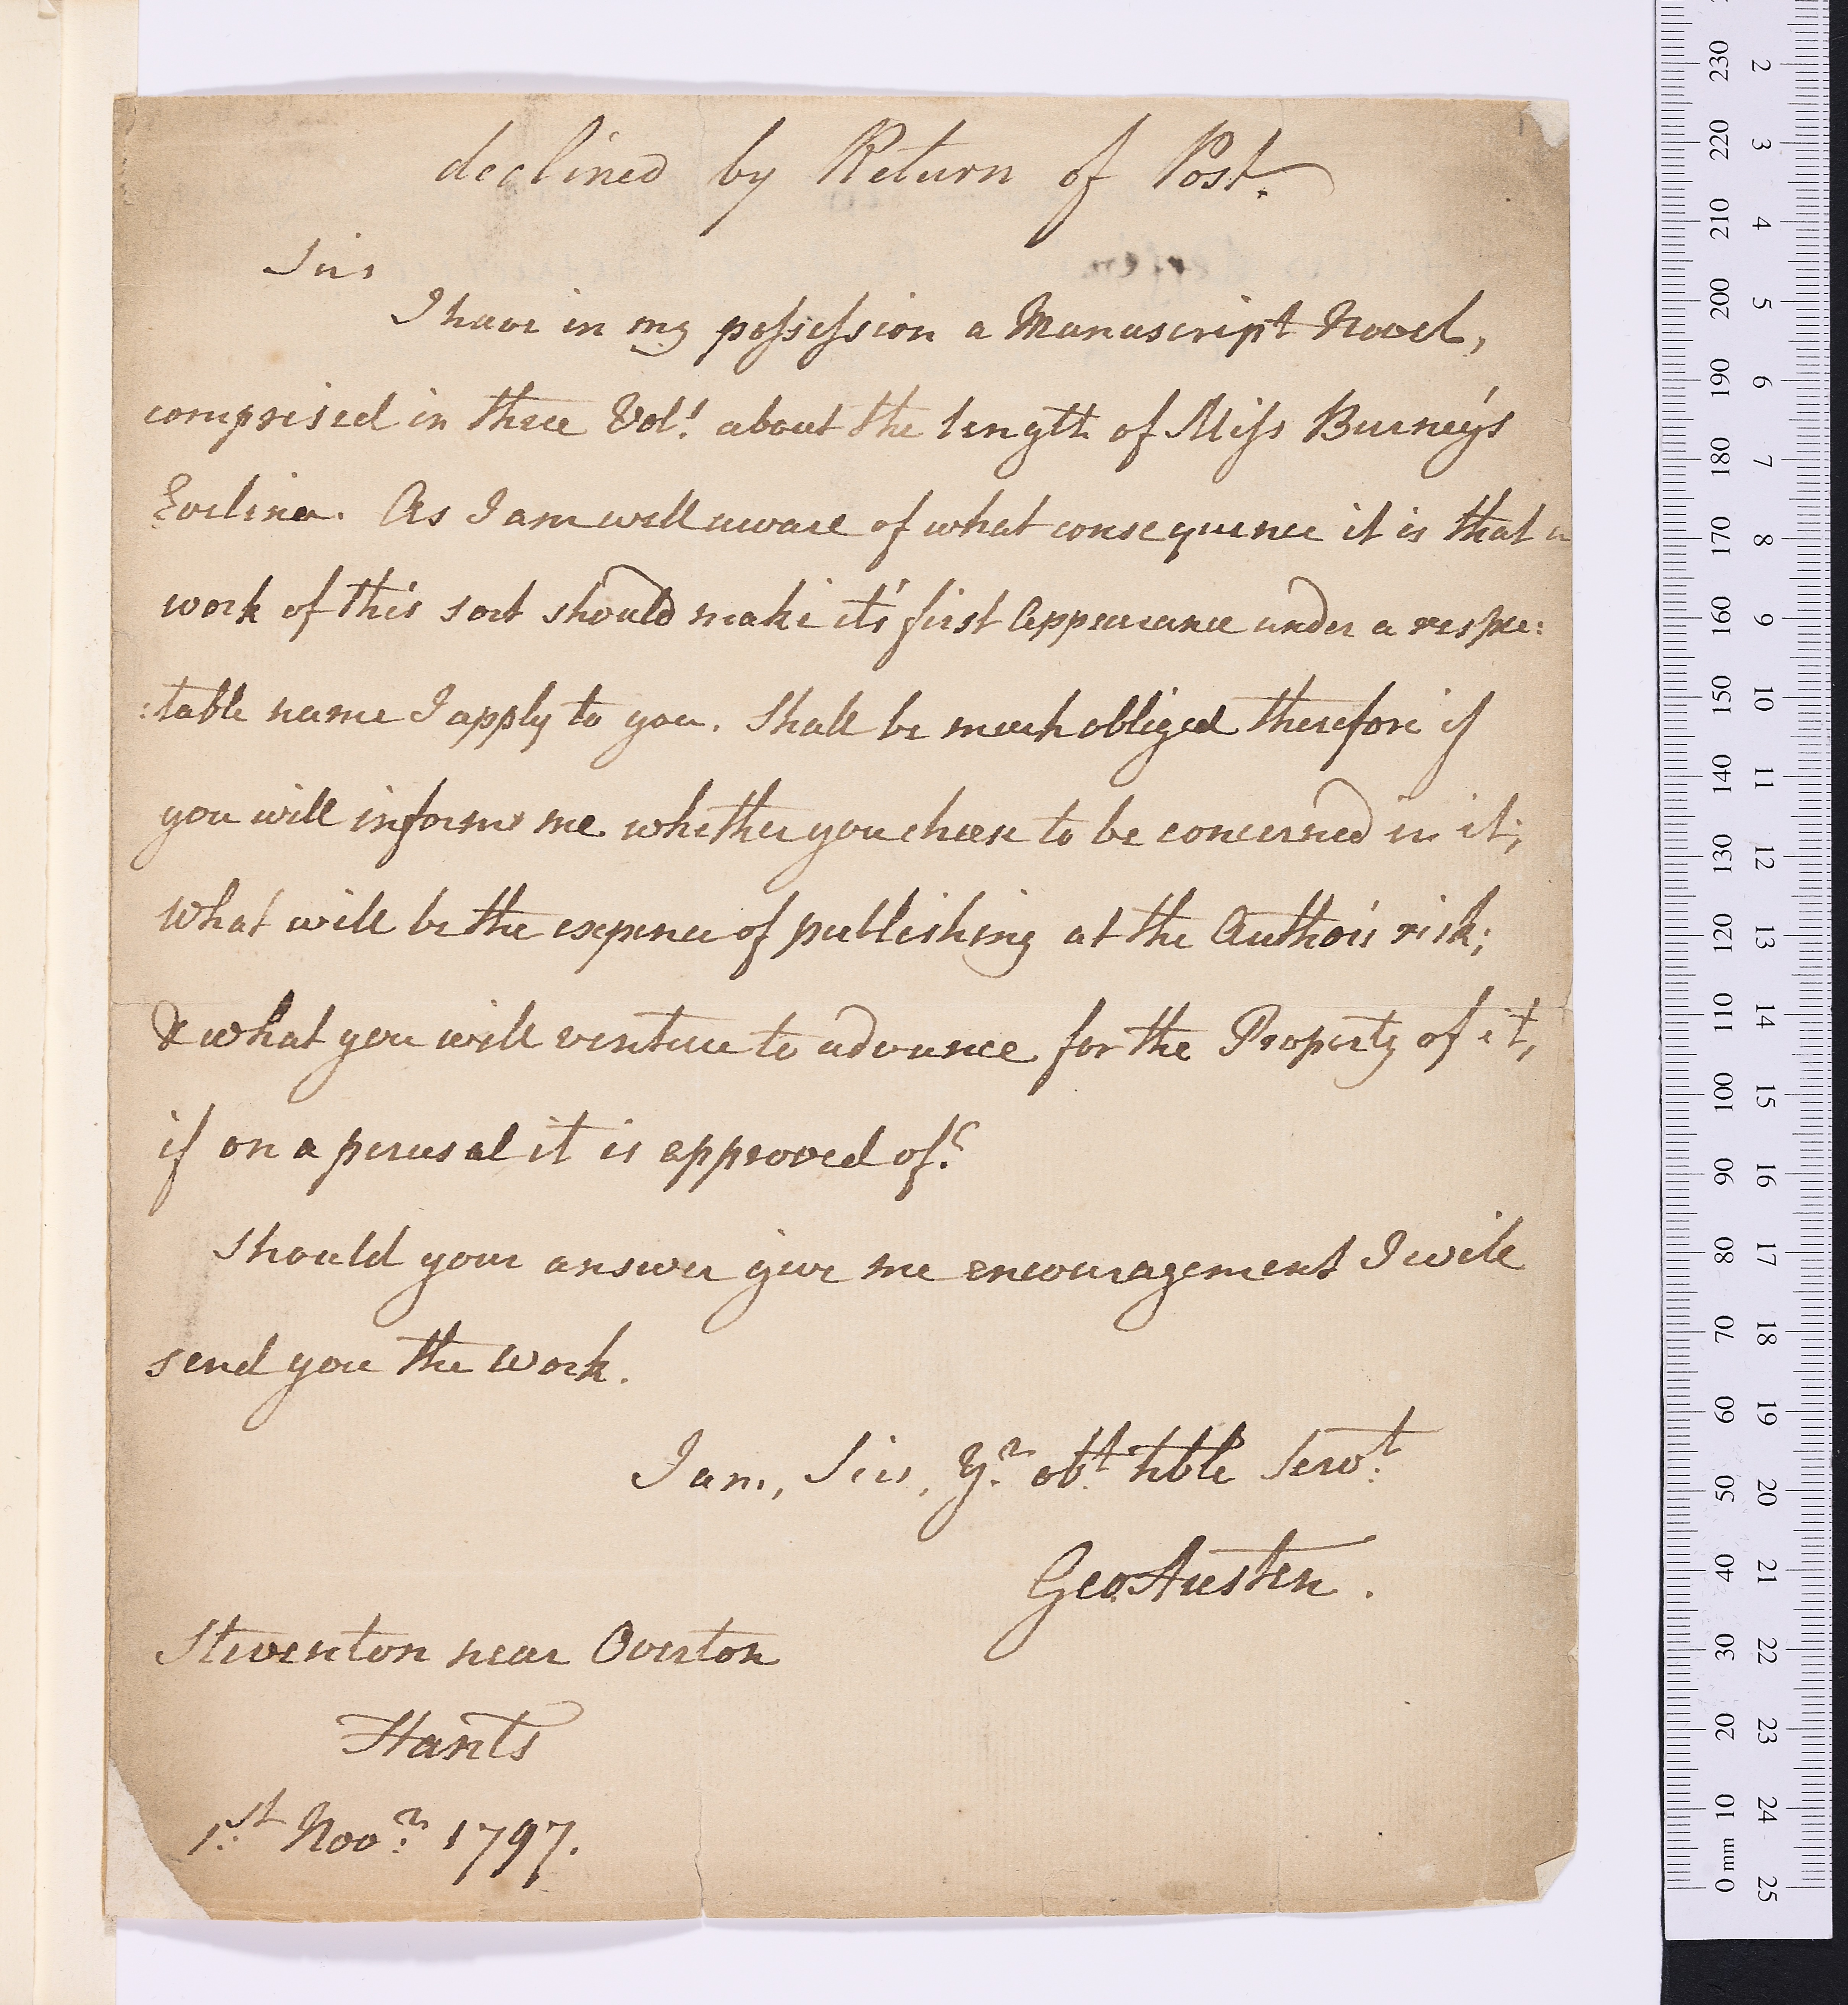 declined by Return of Post.
Sir
I have in my possession a Manuscript Novel,
comprised in three Vols. about the length of Miss Burney's
Evelina. As I am well aware of what consequence it is that a
work of this sort should make it's first Appearance under a respec:
:table name I apply to you. Shall be much obliged therefore if
you will inform me whether you chuse to be concerned in it;
What will be the expence of publishing at the Author's risk;
& what you will venture to advance for the Property of it,
if on a perusal it is approved of?
Should your answer give me encouragement I will
send you the Work.
I am, Sir, Yr. obt. hble Servt.
Geo Austen.
Steventon near Overton
Hants
1st. Novr. 1797.
230 220 210 200 190 180 170 160 150 140 130 120 110 100 90 80 70 60 50 40 30 20 10 0 mm
2 3 4 5 6 7 8 9 10 11 12 13 14 15 16 17 18 19 20 21 22 23 24 25